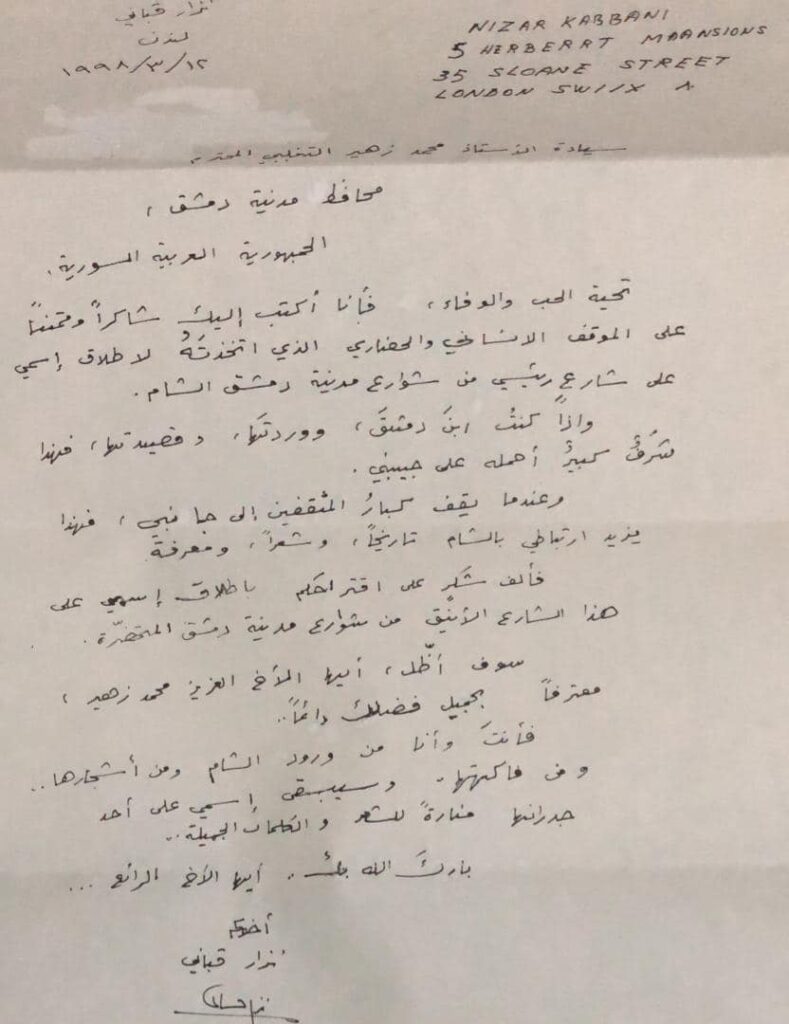 نزار قباني
لندن
١٩٩٨/٣/١٢
NIZAR KABBANI
5 HERBERRT MAANSIONS
35 SLOANE STREET
LONDON SW1X
سيادة الأستاذ محمد زهير التغلبي المحترم
محافظ مدينة دمشق ،
الجمهورية العربية السورية.
تحية الحب والوفاء، فأنا أكتب إليك شاكراً وممتناً
على الموقف الانساني والحضاري الذي اتخذتَهُ لاطلاق إسمي
على شارع رئيسي من شوارع مدينة دمشق الشام.
واذا كنتُ ابنَ دمشقَ، ووردتَها، وقصيدتها، فهذا
شرفٌ كبيرٌ أحمله على جبيني.
وعندما يقف كبارُ المثقفين إلى جانبي، فهذا
يزيد ارتباطي بالشام تاريخاً، وشعراً، ومعرفة
فألف شكرٍ على اقتراحكم باطلاق إسمي على
هذا الشارع الأنيق من شوارع مدينة دمشق المتحضّرة.
سوف أظّل، أيها الأخ العزيز محمد زهير،
معترفاً بجميل فضلك دائماً..
فأنتَ وأنا من ورود الشام ومن أشجارها..
ومن فاكهتها. وسيبقى إسمي على أحد
جدرانها منارةً للشعر والكلمات الجميلة..
باركَ الله بك. أيها الأخ الرائع ...
أخوكم
نزار قباني